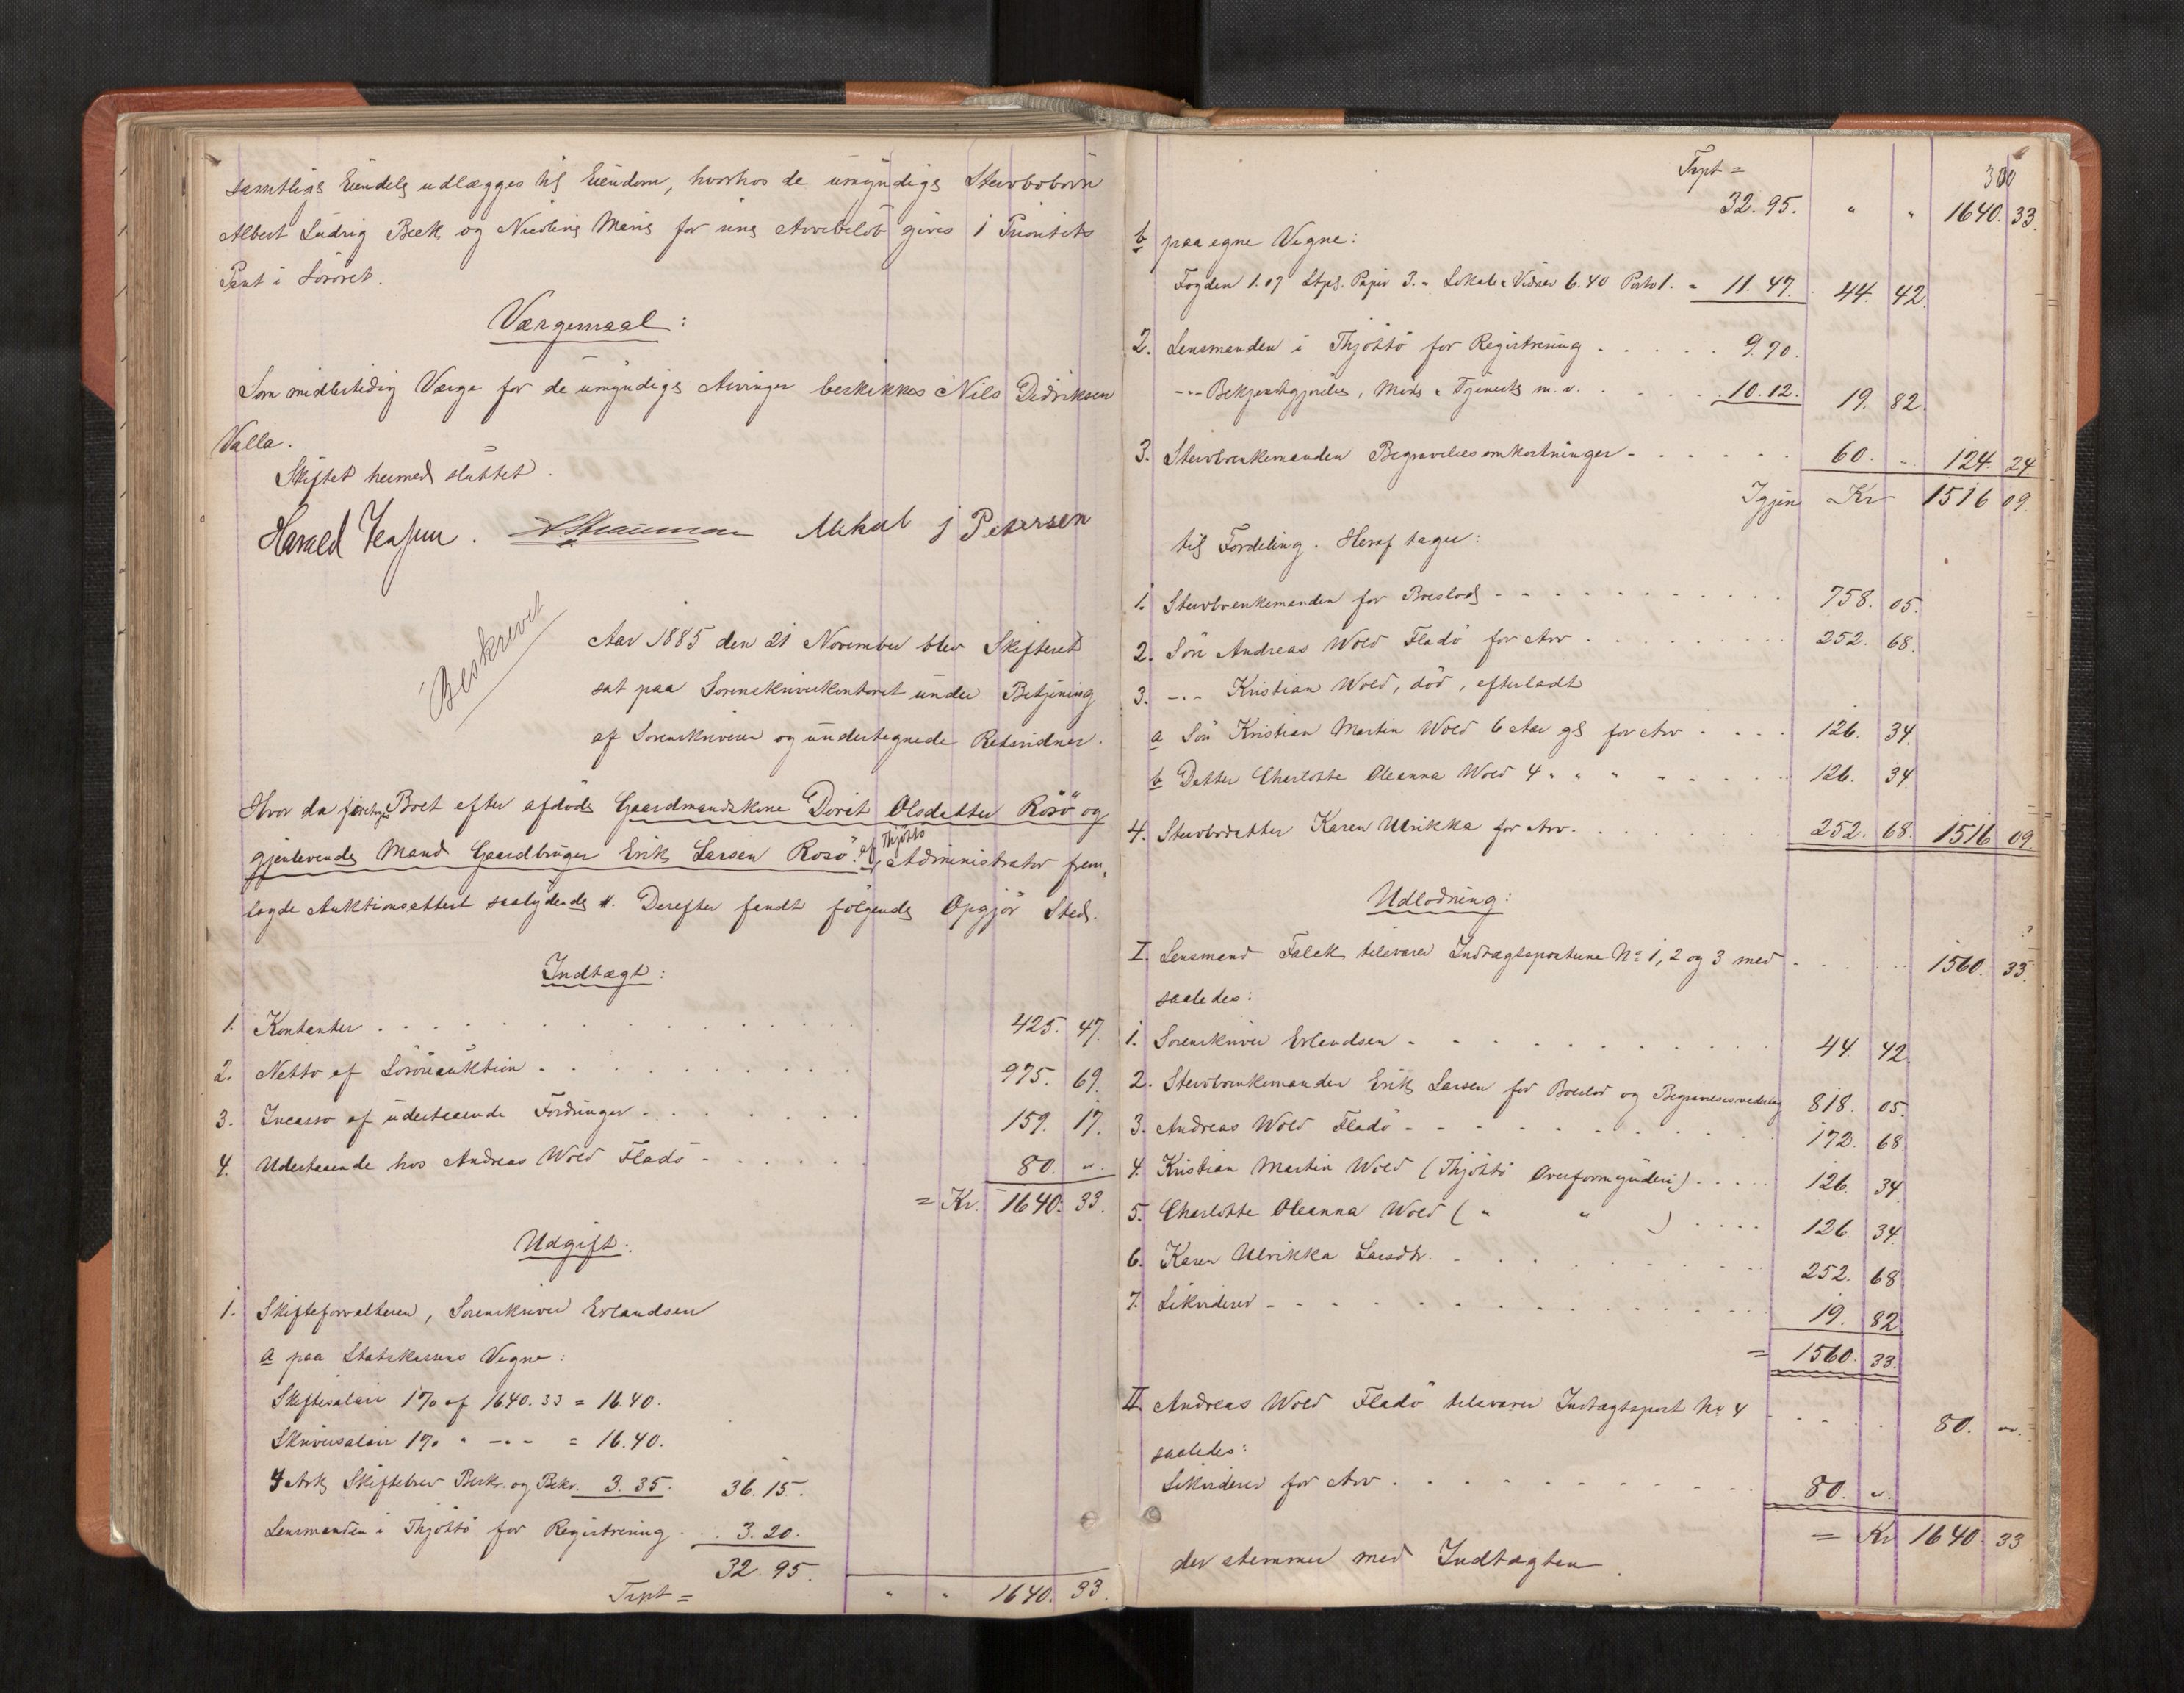 samtlige Eiendele udlægges til Eiendom, hvorhos de umyndige Stervbobørn
Albert Ludvig Beck og Nicoline Marie for sine Arvebeløb gives 1 Prioritets
Pant i Løsøret.
Værgemaal:
Som midlertidig Værge for de umyndige Arvinger beskikkes Nils Didriksen
Valla.
Skiftet hermed sluttet.
Harald Jensen. Mikal j Petersen
Beskrevet
Aar 1885 den 21 November blev Skifteret
sat paa Sorenskriverkontoret under Betjening
af Sorenskriveren og undertegnede Retsvidner.
Hvor da foretoges Boet efter afdøde Gaardmandskone Dorit Olsdatter Rosø og
gjenlevende Mand Gaardbruger Erik Larsen Rosø af Thjøttø. Administrator frem-
lagde Auktionsattest saalydende #. Derefter fandt følgende Opgjør Sted.
Indtægt:
1. Kontanter 425. 47.
2. Netto af Løsøreauktion 975. 69.
3. Incasso af udestaaende Fordringer 159. 17.
4. Udestaaende hos Andreas Wold Fladø 80. "
= Kr. 1640. 33.
Udgift:
1. Skifteforvalteren, Sorenskriver Erlandsen
a paa Statskassens Vegne:
Skiftesalair 1% af 1640.33 = 16.40.
Skriversalair 1% " -"- = 16.40.
4 Ark Skiftebrev Beskr. og Bekr. 3.35. 36.15.
Lensmanden i Thjøttø for Registrering 3.20.
32.95.
Trpt = " " 1640. 33.
300
Trpt =
32.95. " " 1640. 33.
b paa egne Vegne:
Fogden 1.07 Stpl. Papir 3. " Lokale & Vidner 6.40 Porto 1. " 11.47. 44. 42.
2. Lensmanden i Thjøttø for Registrering 9.70.
-"- Bekjendtgjørelse, Møde & Tjeneste m.v. 10.12. 19. 82.
3. Stervboenkemanden Begravelsesomkostninger 60. " 124. 24.
Igjen Kr 1516 09.
til Fordeling. Heraf tager:
1. Stervboenkemanden for Boeslod 758. 05.
2. Søn Andreas Wold Fladø for Arv 252. 68.
3. -"- Kristian Wold, død, efterladt
a Søn Kristian Martin Wold 6 Aar gl for Arv 126. 34.
b Datter Charlotte Oleanna Wold 4 " " " 126. 34.
4. Stervbodatter Karen Ulrikka for Arv 252. 68. 1516 09.
Udlodning:
I. Lensmand Falck tilsvarer Indtægtsposterne No 1, 2 og 3 med 1560. 33.
saaledes:
1. Sorenskriver Erlandsen 44. 42.
2. Stervboenkemanden Erik Larsen for Boeslod og Begravelsesvederlag 818. 05.
3. Andreas Wold Fladø 172. 68.
4. Kristian Martin Wold (Thjøttø Overformynderi) 126. 34.
5. Charlotte Oleanna Wold ( " " ) 126. 34.
6. Karen Ulrikka Larsdtr. 252. 68.
7. Likviderer 19. 82
= 1560. 33.
II. Andreas Wold Fladø tilsvarer Indtægtspost No 4 80. "
saaledes:
Likviderer for Arv 80. "
= Kr 1640. 33
der stemmer med Indtægten.